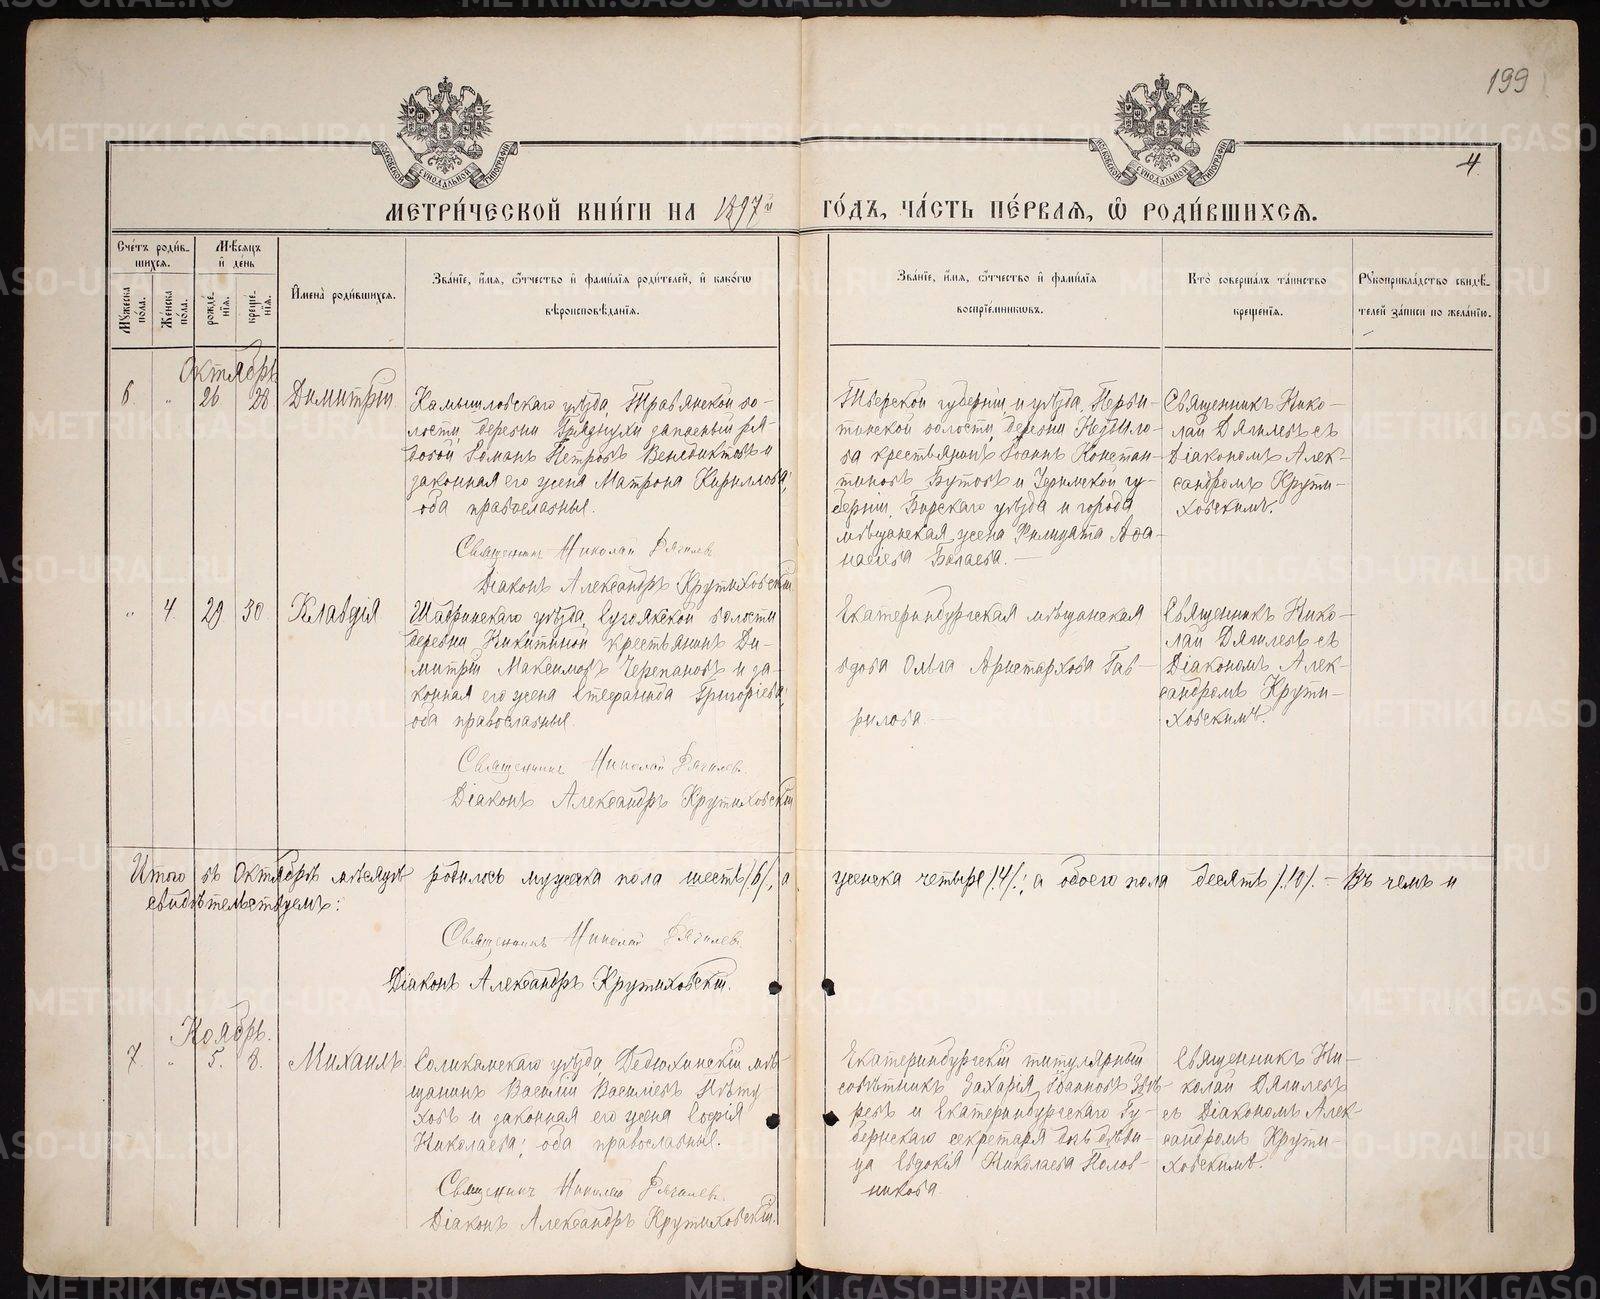 199
4
МЕТРИ́ЧЕСКОЙ КНИ́ГИ НА 1897й ГО́ДЪ, ЧА́СТЬ ПЕ́РВАЯ, Ѽ РОДИ́ВШИХСЯ.
Сче́тъ роди́вшихся.
Мꙋжеска по́ла.
Же́нска по́ла.
Мѣ́сяцъ и҆ де́нь
рожде́нїя.
креще́нїя.
И҆мена̀ роди́вшихся.
Зва́нїе, и҆́мя, ѻ҆́тчество и҆ фами́лїя роди́телей, и҆ како́гѡ
вѣроисповѣ́данїя.
Зва́нїе, и҆́мя, ѻ҆́тчество и҆ фами́лїя
воспрїе́мникѡвъ.
Кто̀ соверша́лъ та́инство
креще́нїя.
Рꙋкоприкла́дство свидѣ́-
телей за́писи по жела́нїю.
Октябрь
6 " 26 28 Димитрiй
Камышловскаго уѣзда, Травянской во-
лости, деревни Грязнухи запасный ря-
довой Романъ Петровъ Венедиктовъ и
законная его жена Матрона Кириллова;
оба православные.
Священникъ Николай Дягилевъ
Дiаконъ Александръ Крутиховскiй
Тверской губернiи и уѣзда, Первит-
тинской волости, деревни
крестьянинъ Iоаннъ Констан-
тиновъ Бутовъ и Уфимской гу-
бернiи, Бирскаго уѣзда и города
мѣщанская жена Филицата Афа-
насiева
Священникъ Нико-
лай Дягилевъ съ
Дiакономъ Алек-
сандромъ Крути-
ховскимъ.
" 4. 29 30. Клавдiя
Шадринскаго уѣзда, Сугоякской волости
деревни Никитиной крестьянинъ Ди-
митрiй Максимовъ Черепановъ и за-
конная его жена Стефанида Григорiева;
оба православные
Священникъ Николай Дягилевъ.
Дiаконъ Александръ Крутиховскiй
Екатеринбургская мѣщанская
вдова Ольга Аристархова Гав-
рилова.
Священникъ Нико-
лай Дягилевъ съ
Дiакономъ Алек-
сандромъ Крути-
ховскимъ.
Итого въ Октябрѣ мѣсяцѣ родилось мужеска пола шесть /6/, а женска четыре /4/; а обоего пола десять /10/. – Въ чемъ и
свидѣтельствуемъ:
Священникъ Николай Дягилевъ.
Дiаконъ Александръ Крутиховскiй.
Ноябрь.
7. " 5. 8. Михаилъ
Соликамскаго уѣзда, Дедюхинскiй мѣ-
щанинъ Василiй Василiевъ
и законная его жена Софiя
Николаева; оба православные.
Священникъ Николай Дягилевъ.
Дiаконъ Александръ Крутиховскiй.
Екатеринбургскiй титулярный
совѣтникъ Захарiя Iоанновъ Звѣ-
ревъ и Екатеринбургскаго Гу-
бернскаго секретаря дочь дѣви-
ца Евдокiя Николаева Полов-
никова
Священникъ Ни-
колай Дягилевъ
съ Дiакономъ Алек-
сандромъ Крути-
ховскимъ.
METRIKI.GASO-URAL.RU